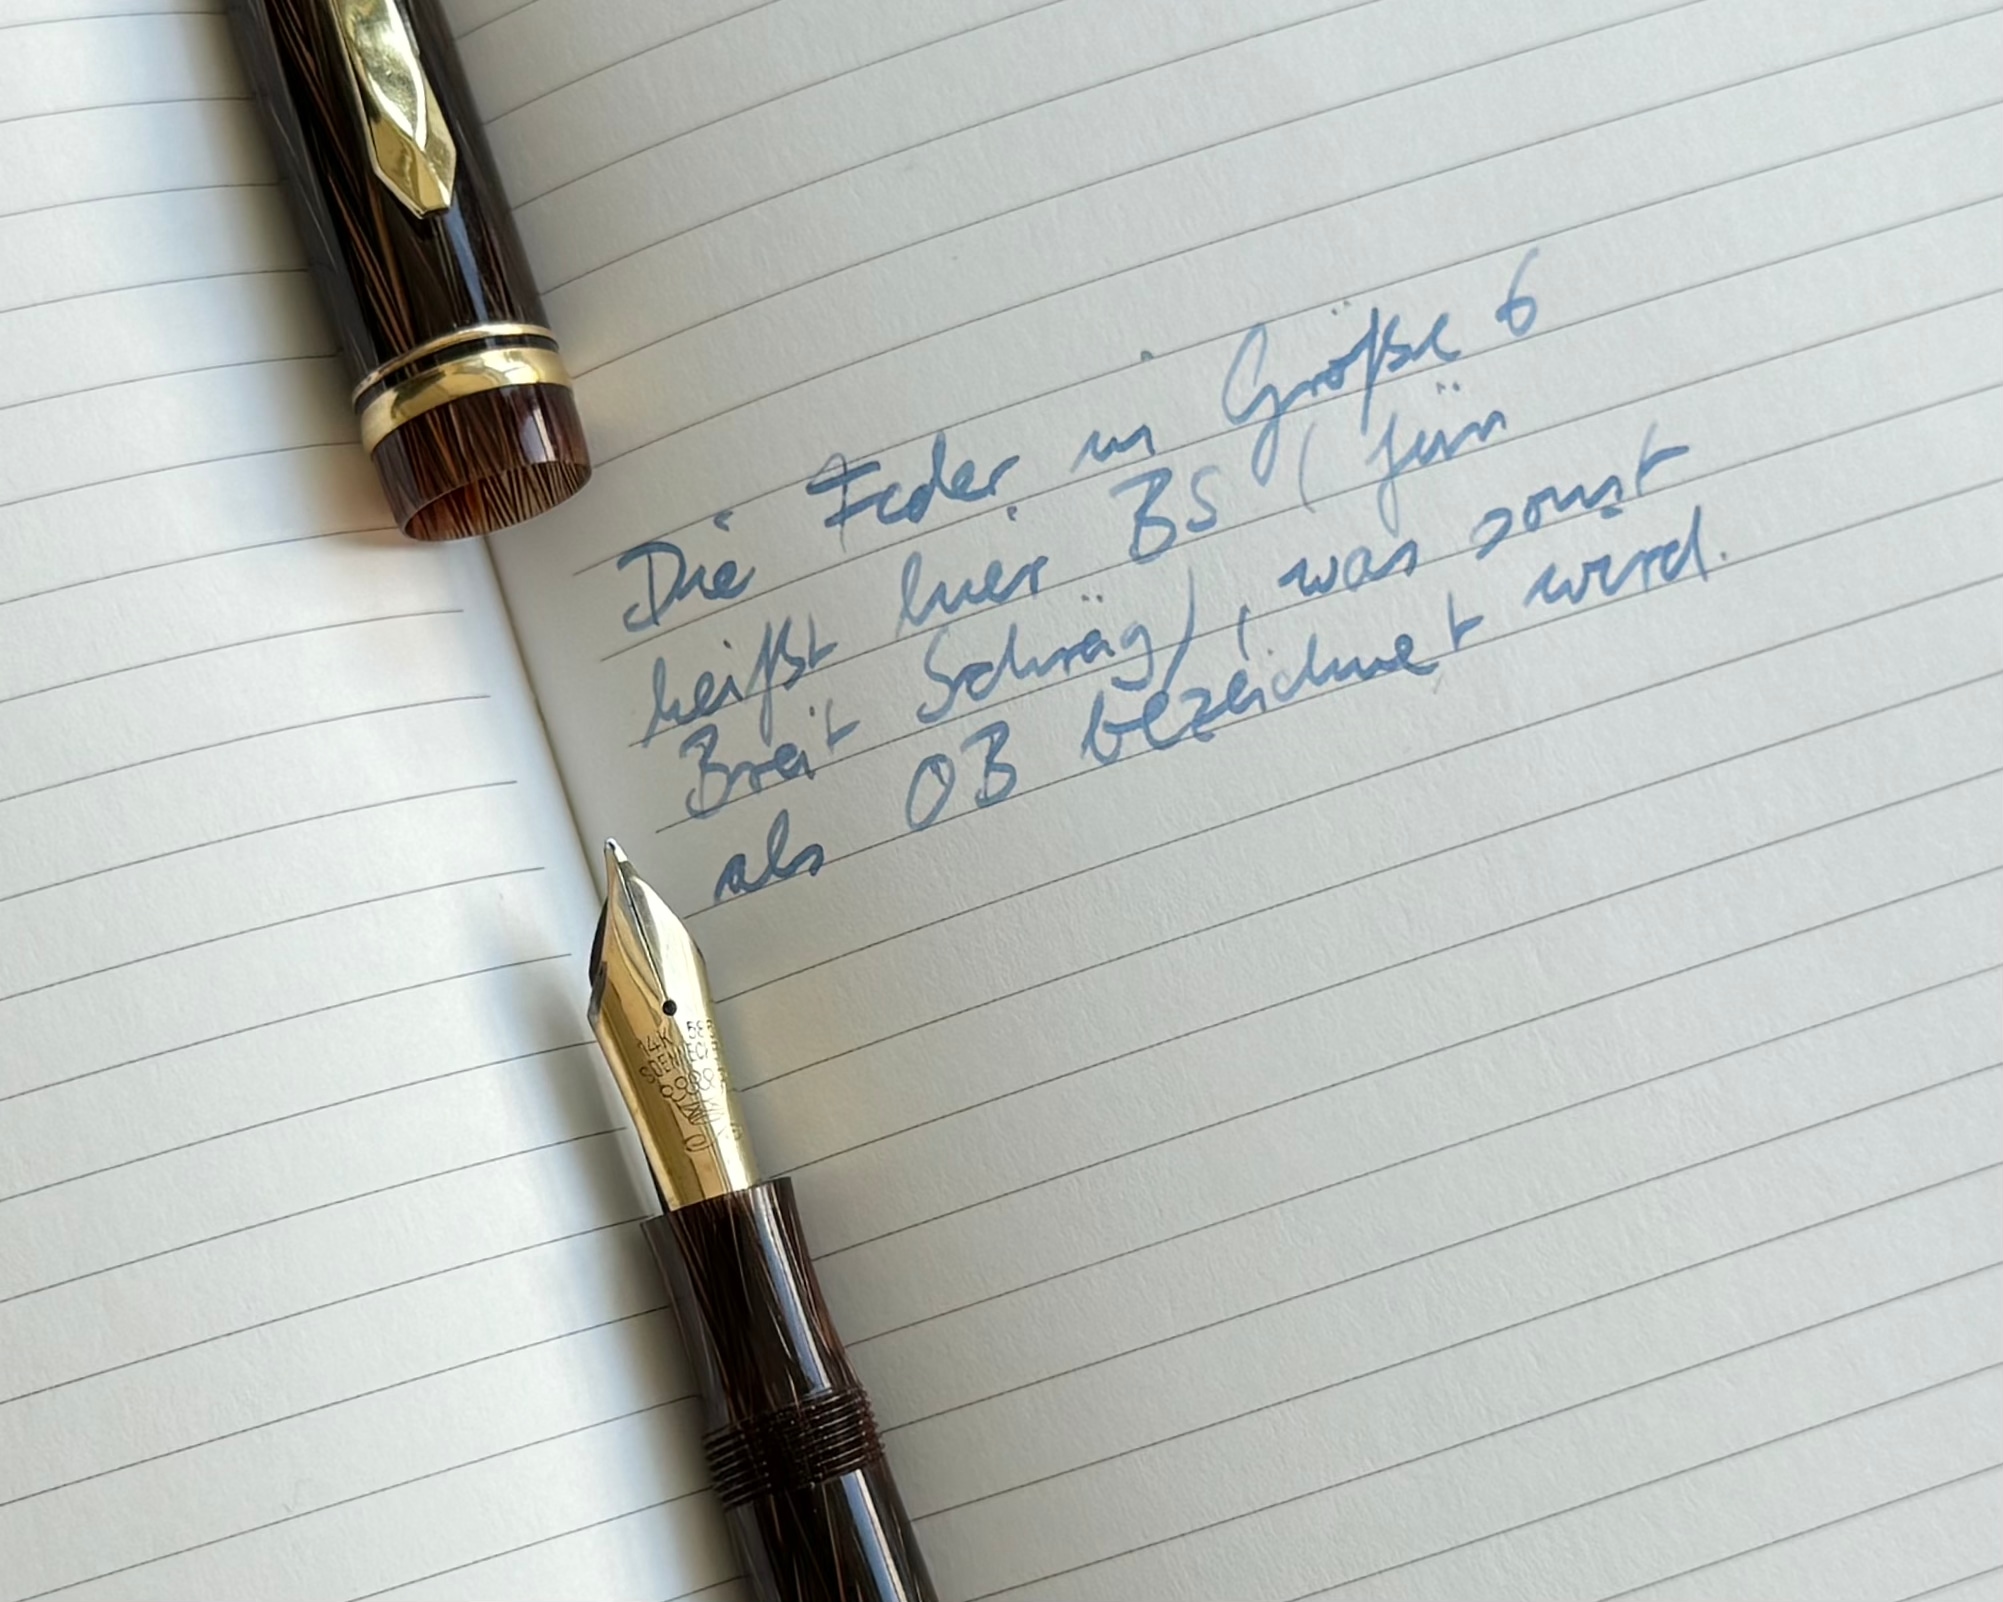 Die Feder in Größe 6
heißt hier BS (für
Breit Schräg), was sonst
als OB bezeichnet wird.
14K 585
SOENNECKEN